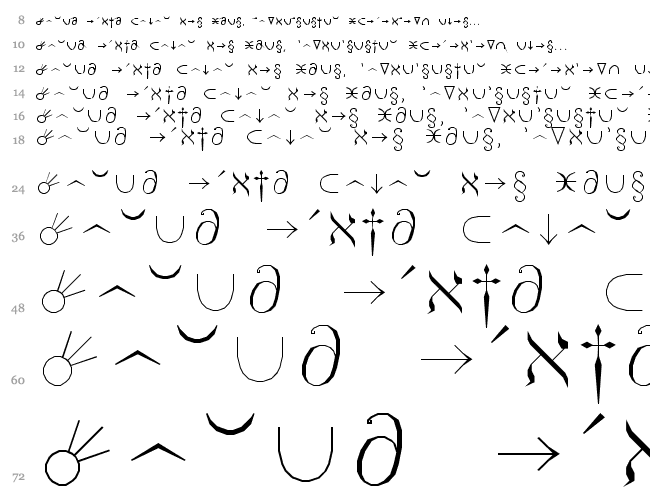 8 ☄^˘∪∂ →´ℵ†∂ ⊂^↓^˘ ℵ→§ ♓∂∪§, `^∇ℵ∪`§∪§†∪˘ ♓⊂→´→ℵ`→∇∩ ∪↓→§...
10 ☄^˘∪∂ →´ℵ†∂ ⊂^↓^˘ ℵ→§ ♓∂∪§, `^∇ℵ∪`§∪§†∪˘ ♓⊂→´→ℵ`→∇∩ ∪↓→§...
12 ☄^˘∪∂ →´ℵ†∂ ⊂^↓^˘ ℵ→§ ♓∂∪§, `^∇ℵ∪`§∪§†∪˘ ♓⊂→´→ℵ`→∇∩ ∪
14 ☄^˘∪∂ →´ℵ†∂ ⊂^↓^˘ ℵ→§ ♓∂∪§, `^∇ℵ∪`§∪§†∪˘ ♓⊂→´
16 ☄^˘∪∂ →´ℵ†∂ ⊂^↓^˘ ℵ→§ ♓∂∪§, `^∇ℵ∪`§∪§†∪˘ ♓
18 ☄^˘∪∂ →´ℵ†∂ ⊂^↓^˘ ℵ→§ ♓∂∪§, `^∇ℵ∪`§∪
24 ☄^˘∪∂ →´ℵ†∂ ⊂^↓^˘ ℵ→§ ♓∂∪§
36 ☄^˘∪∂ →´ℵ†∂ ⊂^↓^˘
48 ☄^˘∪∂ →´ℵ†∂ ⊂
60 ☄^˘∪∂ →´ℵ†∂
72 ☄^˘∪∂ →´ℵ